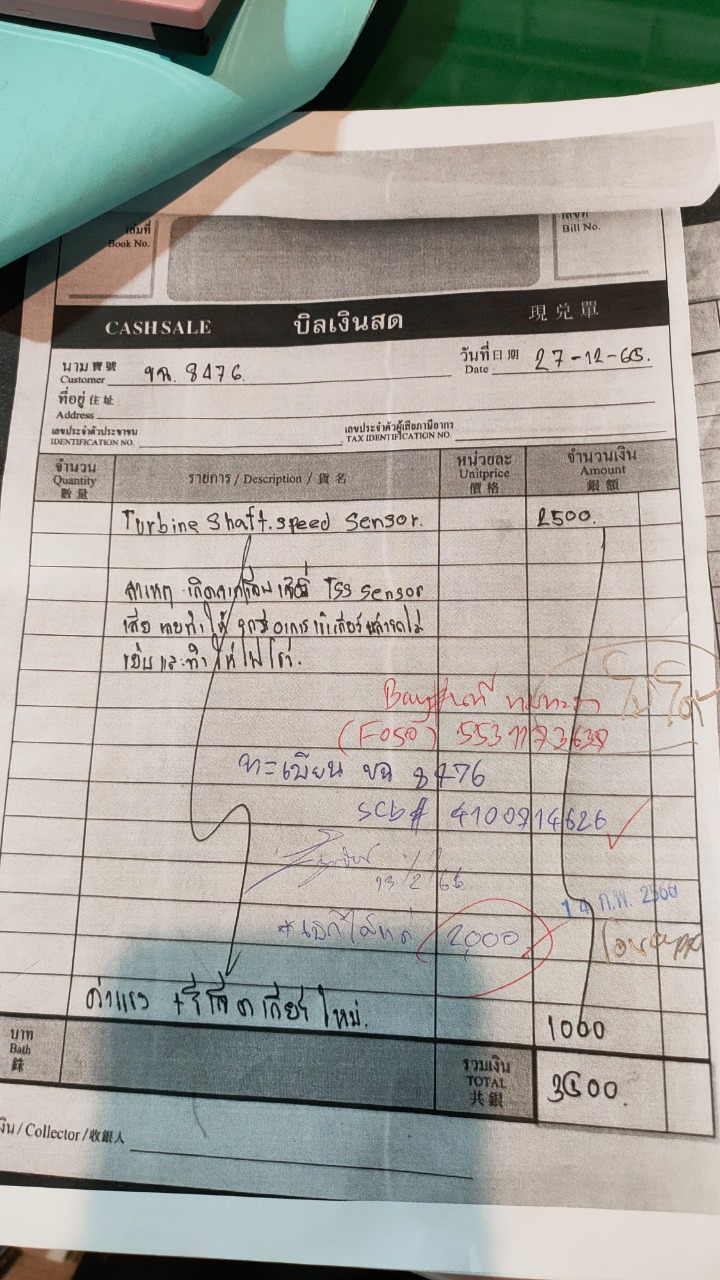 เล่มที่
Book No.
เลขที่
Bill No.
CASH SALE บิลเงินสด 現兌單
นาม 寶號
Customer ขฉ. 8476.
วันที่ 日期
Date 27-12-65.
ที่อยู่ 住址
Address
เลขประจำตัวประชาชน
IDENTIFICATION NO.
เลขประจำตัวผู้เสียภาษีอากร
TAX IDENTIFICATION NO.
จำนวน
Quantity
數量
รายการ / Description / 貨名
หน่วยละ
Unitprice
價格
จำนวนเงิน
Amount
銀額
Turbine Shaft.speed Sensor. 2500.
สาเหตุ TSS Sensor
เสีย เลยทำให้ อาการ
และทำให้ไฟโชว์.
(Foso)
ทะเบียน ขฉ 8476
scb# 4100914626
13/2/66
14 ก.พ. 2566
2,000
ค่าแรง + รีเซ็ตเกียร์ใหม่. 1000
บาท
Bath
銖
รวมเงิน
TOTAL
共銀
3500.
เงิน / Collector / 收銀人